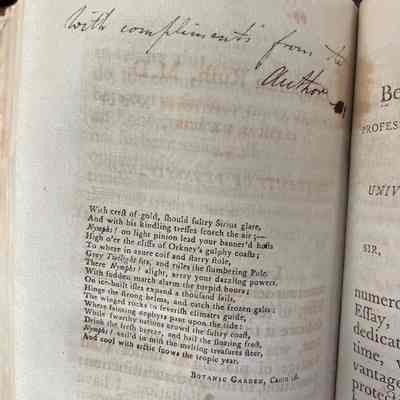 With compliments from the
Author
With crest of gold, should sultry Sirius glare,
And with his kindling tresses scorch the air;—
Nymphs! on light pinion lead your banner'd hosts
High o'er the cliffs of Orkney's gulphy coasts;
To where in azure coif and starry stole,
Grey Twilight sits, and rules the slumbering Pole.
There Nymphs! alight, array your dazzling powers,
With sudden march alarm the torpid hours;
On ice-built isles expand a thousand sails,
Hinge the strong helms, and catch the frozen gales:
The winged rocks to feverish climates guide,
Where fainting zephyrs pant upon the tide:
While swarthy nations crowd the sultry coast,
Drink the fresh breeze, and hail the floating frost,
Nymphs! veil'd in mist the melting treasures steer,
And cool with arctic snows the tropic year.
Botanic Garden, Canto
Be
PROFES
UNIV
SIR,
numero
Essay,
dedicat
time, v
vantage
protect
became